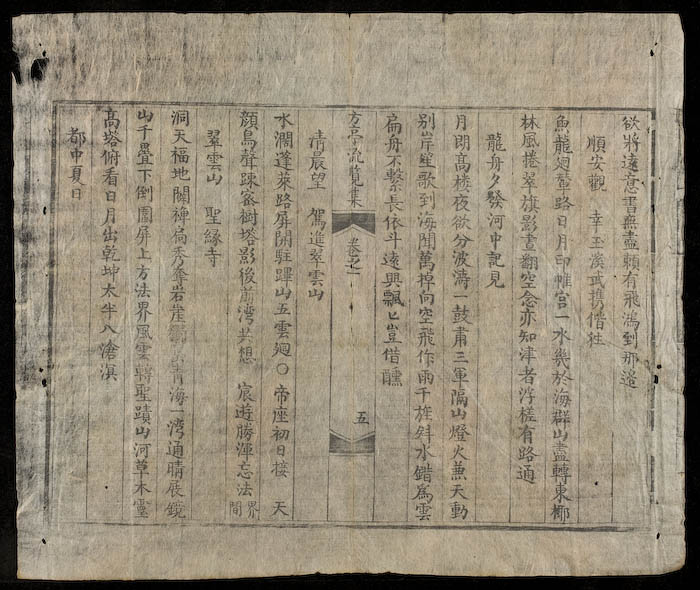 欲將遠意書無盡賴有飛鴻到那邉
順安觀　幸玉　武携偕徃
魚龍廻輦路日月印帷宫一水幾於海群山盡轉東椰
林風捲翠旗影畫翻空念亦知津者浮槎有路通
龍舟夕發河中記見
月朗髙楼夜欲分波濤一鼓肅三軍隔山燈火兼天動
别岸笙歌到海聞萬棹向空飛作雨千旌斜水錯爲雲
扁舟不繫長依斗遠興飄匕豈借醺
方亭流覽集　卷之一　五
清晨望　駕進翠雲山
水濶蓬萊路屏開駐蹕山五雲廻〇帝座初日接　天
顔鳥聲踈宻樹塔影後前湾共想　宸遊勝渾忘法界間
翠雲山　聖縁寺
洞天福地闢禪扃秀奪岩崖　青海一湾通晴展鏡
山千疊下倒圍屏上方法界風雲轉聖蹟山河草木靈
髙塔俯看日月出乾坤太半八滄溟
都中夏日